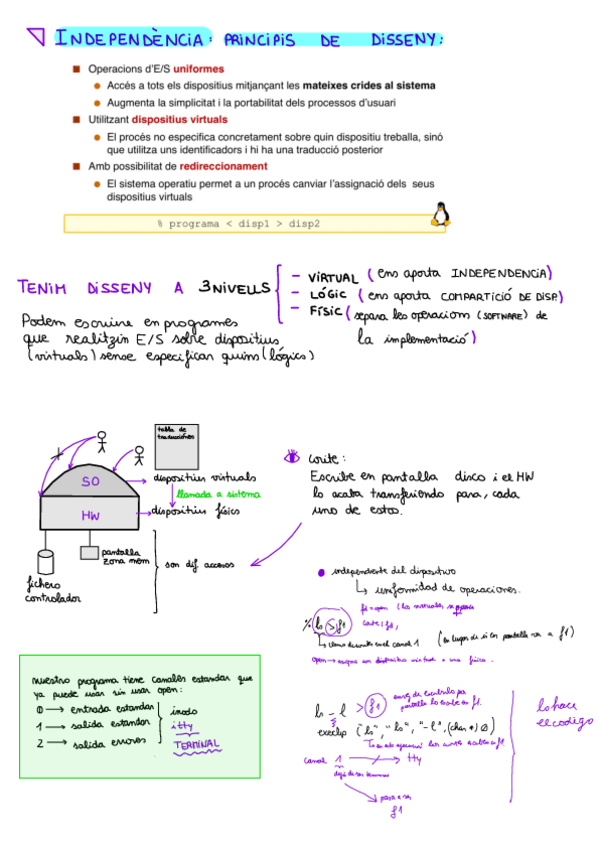 INDEPENDÈNCIA: PRINCIPIS DE DISSENY:
Operacions d'E/S uniformes
Accés a tots els dispositius mitjançant les mateixes crides al sistema
Augmenta la simplicitat i la portabilitat dels processos d'usuari
Utilitzant dispositius virtuals
El procés no especifica concretament sobre quin dispositiu treballa, sinó
que utilitza uns identificadors i hi ha una traducció posterior
Amb possibilitat de redireccionament
El sistema operatiu permet a un procés canviar l'assignació dels seus
dispositius virtuals
% programa < disp1 > disp2
TENIM DISSENY A 3 NIVELLS
- VIRTUAL (ens aporta INDEPENDENCIA)
- LÓGIC (ens aporta COMPARTICIÓ DE DISP.)
- FÍSIC (separa les operacions (SOFTWARE) de
la implementació)
Podem escriure en programes
que realitzin E/S sobre dispositius
(virtuals) sense especificar quins (lógics)
tabla de
traducciones
SO
dispositius virtuals
llamada a sistema
HW
dispositiu físics
pantalla
zona mem
son dif accesos
fichero
controlador
write:
Escribe en pantalla disco i el HW
lo acaba transfiriendo para, cada
uno de estos.
independiente del dispositivo
uniformidad de operaciones.
% ls > f1
(en lugar de si en pantalla va a f1)
nuestro programa tiene canales estandar que
ya puede usar sin usar open:
0 → entrada estandar
1 → salida estandar
2 → salida errores
inodo
tty
TERMINAL
ls -l > f1
execlp ("ls", "ls", "-l", (char *) 0)
canal 1 → tty
pasa a ser
f1
lo hace
el codigo